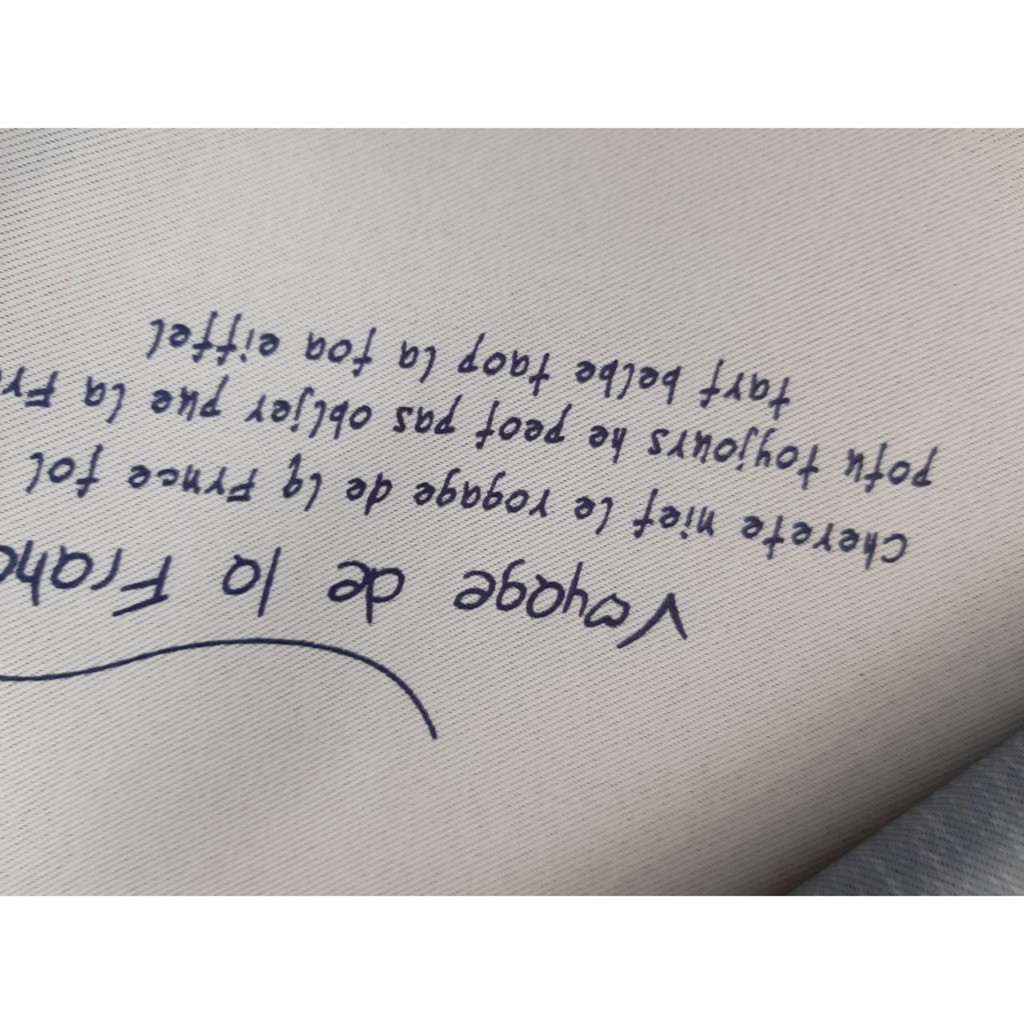 Voyage de la Franc
Cherete nief le rogage de lq Frnce fol
pofu toyjours he peof pas obljer pue la Fr
farf belbe faop la foa eiffel